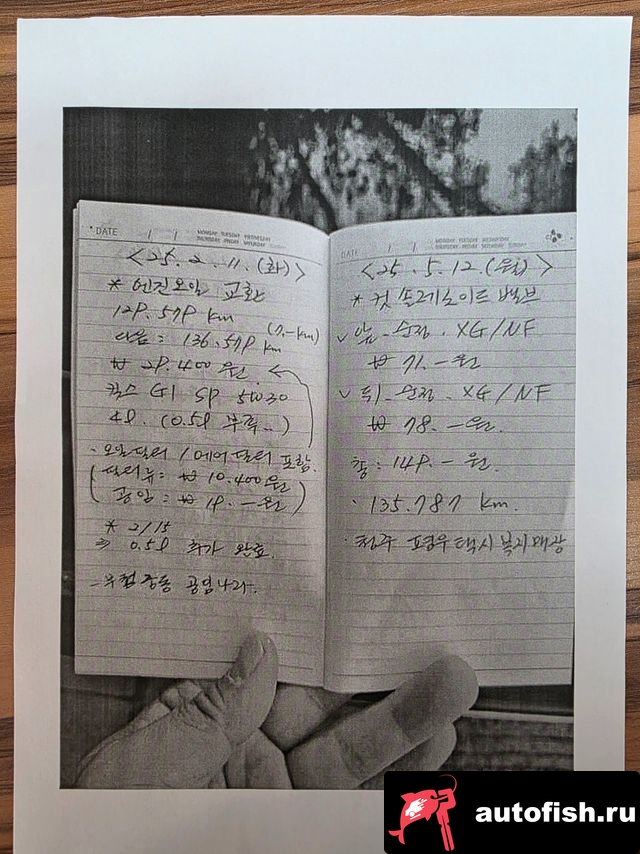 DATE / /
MONDAY TUESDAY WEDNESDAY
THURSDAY FRIDAY SATURDAY SUNDAY
<25. 2. 11. (화)>
* 엔진오일 교환
129.579 km
다음 : 136.579 km (7.-km)
₩ 29.400 원
킥스 G1 SP 5W30
4l. (0.5l 부족..)
· 오일필터 / 에어필터 포함.
필터류 : ₩ 10.400원
공임 : ₩ 19.-원
* 2/15
⇒ 0.5l 추가 완료.
중동 공임나라.
DATE / /
MONDAY TUESDAY WEDNESDAY
THURSDAY FRIDAY SATURDAY SUNDAY
<25. 5. 12. (월)>
* 컷 솔레노이드 밸브
v 앞. 순정. XG/NF
₩ 71.-원
v 뒤. 순정. XG/NF
₩ 78.-원.
총 : 149.-원.
· 135.787 km.
· 청주 택시복지매장
autofish.ru